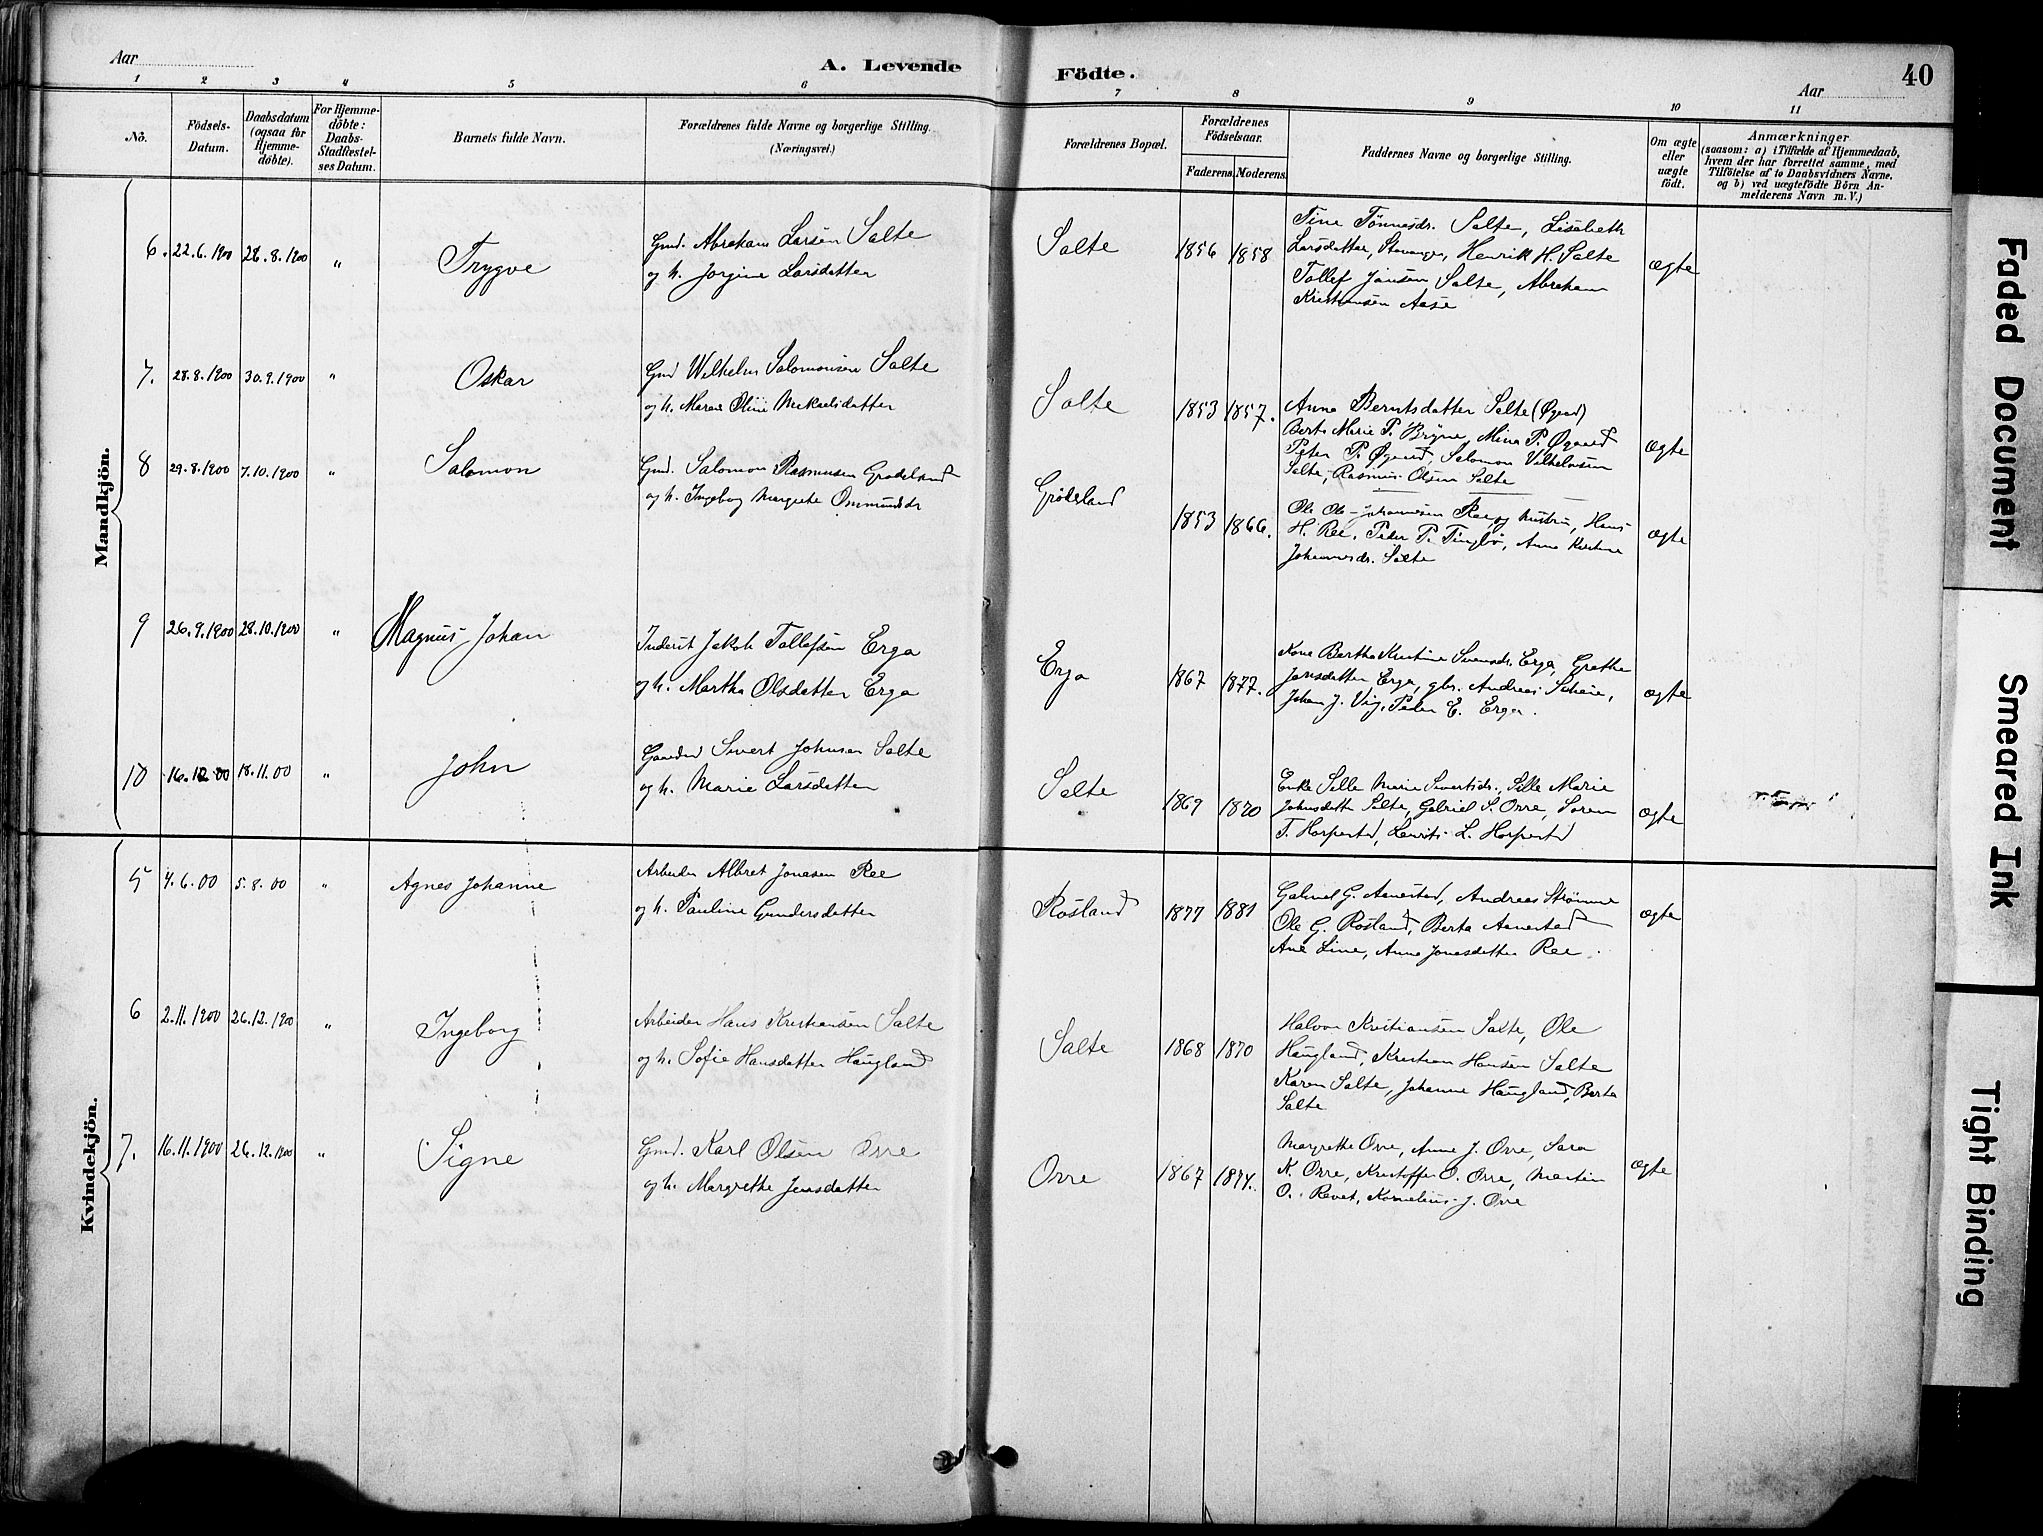 Aar
A. Levende
Födte.
Aar
40
1 2 3 4 5 6 7 8 9 10 11
No.
Födsels-
Datum.
Daabsdatum
(ogsaa for
Hjemme-
døbte).
For Hjemme-
døbte:
Daabs-
Stadfæstel-
ses Datum.
Barnets fulde Navn.
Forældrenes fulde Navne og borgerlige Stilling.
(Næringsvei.)
Forældrenes Bopæl.
Forældrenes
Födselsaar.
Faderens. Moderens.
Faddernes Navne og borgerlige Stilling.
Om ægte
eller
uægte
født.
Anmærkninger
(saasom: a) i Tilfælde af Hjemmedaab,
hvem der har forrettet samme, med
Tilføielse af to Daabsvidners Navne,
og b) ved uægtefödte Börn An-
melderens Navn m. V.)
Mandkjön.
6. 22.6.1900 28.8.1900 " Trygve
Gmd. Abraham Larsen Salte
og h. Jorgine Larsdatter
Salte 1856 1858
Tine Tønnesdr. Salte, Lisabeth
Larsdatter, Stavanger, Henrik H. Salte
Tollef Jansen Salte, Abraham
Kristiansen Aase
ægte
7. 28.8.1900 30.9.1900 " Oskar
Gmd Wilhelm Salomonsen Salte
og h. Maren Oline Mikaelsdatter
Salte 1853 1857.
Anna Berntsdatter Salte (Øgard)
Berta Marie P. Bryne, Mina P. Øgaard
Peter P. Øgaard, Salomon Vilhelmsen
Salte, Rasmus Olsen Salte
ægte
8 29.8.1900 7.10.1900 " Salomon
Gmd. Salomon Rasmussen Grødeland
og h. Ingeborg Margrete Ommundsdr
Grødeland 1853 1866.
Ole Johannesen Ree og hustru, Hans
H. Ree, Peder P. Tinglbø, Anna Kristine
Johannesdr. Salte
ægte
9 26.9.1900 28.10.1900 " Magnus Johan
Inderst Jakob Tollefsen Erga
og h. Martha Olsdatter Erga
Erga 1867 1877.
Kone Bertha Kristine Svensdr. Erga, Grethe
Jansdatter Erga, gbr. Andreas,
Johan J. Vig, Peder E. Erga.
ægte
10 16.10.00 18.11.00 " John
Gaardbr Sivert Johnsen Salte
og h. Marie Larsdatter
Salte 1869 1870
Enke Sille Marie Sivertsdr., Sille Marie
Johnsdatter Salte, Gabriel S. Orre, Søren
T. Horpestad, Lauritz L. Horpestad
ægte
Kvindekjön.
5 4.6.00 5.8.00 " Agnes Johanne
Arbeider Albret Jonasen Ree
og h. Pauline Gundersdatter
Rosland 1877 1881
Gabriel G. Aanestad, Andreas Strømme
Ole G. Rosland, Berta Aanestad
Ane Line, Anna Jonasdatter Ree.
ægte
6 2.11.1900 26.12.1900 " Ingeborg
Arbeider Hans Kristiansen Salte
og h. Sofie Hansdatter Haugland
Salte 1868 1870
Halvor Kristiansen Salte, Ole
Haugland, Kristian Hansen Salte
Karen Salte, Johanne Haugland, Berta
Salte
7. 16.11.1900 26.12.1900 " Signe
Gmd. Karl Olsen Orre
og h. Margrethe Jensdatter
Orre 1867 1874.
Margrethe Orre, Anne J. Orre, Sara
K. Orre, Kristoffer O. Orre, Martin
O. Revet, Kornelius J. Orre
ægte
Faded Document
Smeared Ink
Tight Binding